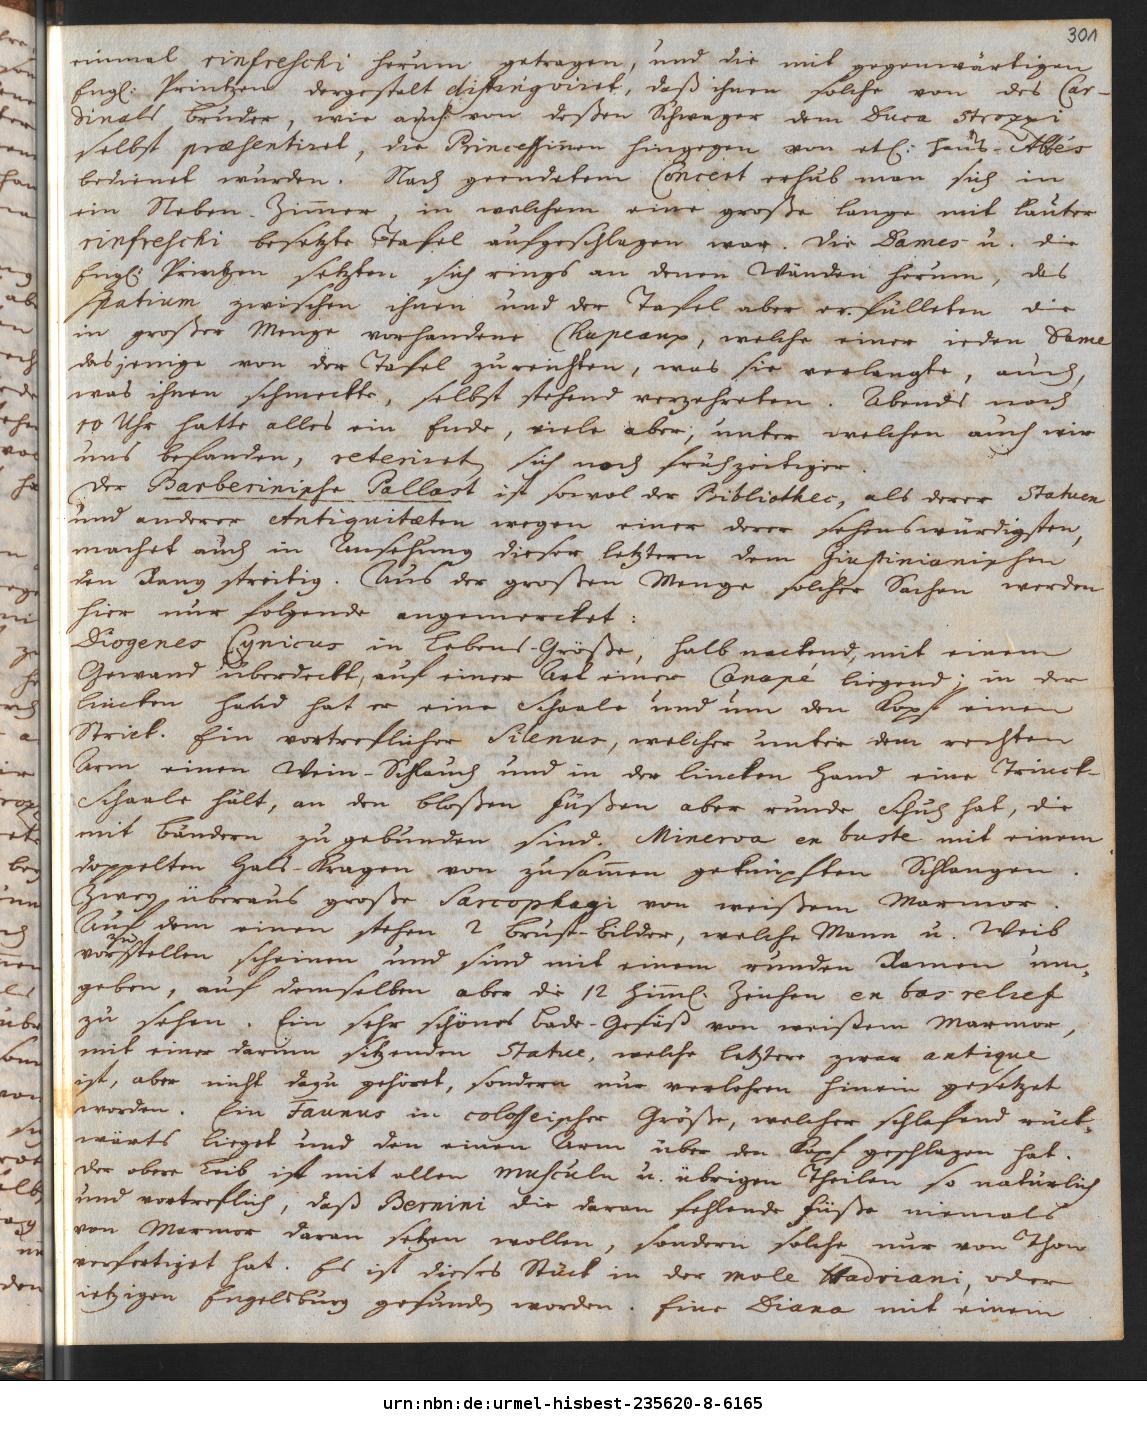 301
einmal rinfreschi herum getragen, und die mit gegenwärtigen
Engl: Printzen dergestalt distinguiret, daß ihnen solche von des Car-
dinals Bruder, wie auch von deßen Schwager dem Duca Strozzi
selbst præsentiret, die Princessinnen hingegen von etl: Hauß-Abbés
bedienet wurden. Nach geendetem Concert erhub man sich in
ein Neben-Zimer, in welchem eine große lange mit lauter
rinfreschi besetzte Tafel aufgeschlagen war. Die Dames u. die
Engl: Printzen setzten sich rings an denen Wänden herum, das
spatium zwischen ihnen und der Tafel aber erfülleten die
in großer Menge vorhandene Chapeaux, welche einer ieden Dame
dasjenige von der Tafel zureichten, was sie verlangte, auch,
was ihnen schmeckte, selbst stehend verzehreten. Abends nach
10 Uhr hatte alles ein Ende, viele aber, unter welchen auch wir
uns befanden, reterirten sich noch frühzeitiger.
Der Barberinische Pallast ist sowol der Bibliothec, als derer Statuen
und anderer Antiquitæten wegen einer derer sehenswürdigsten,
machet auch in Ansehung dieser letztern dem Giustinianischen
den Rang streitig. Aus der großen Menge solcher Sachen werden
hier nur folgende angemercket:
Diogenes Cynicus in Lebens-Größe, halb nackend, mit einem
Gewand überdeckt, auf einer Art einer Canapé liegend; in der
lincken Hand hat er eine Schaale und um den Kopf einen
Strick. Ein vortreflicher Silenus, welcher unter dem rechten
Arm einen Wein-Schlauch und in der lincken Hand eine Trinck-
Schaale hält, an den bloßen Füßen aber runde Schuh hat, die
mit Bändern zugebunden sind. Minerva en buste mit einem
doppelten Hals-Kragen von zusamen geknüpften Schlangen.
Zwey überaus große Sarcophagi von weißem Marmor.
Auf dem einen stehen 2 Brust-Bilder, welche Mann u. Weib
vorzustellen scheinen und sind mit einem runden Ramen um-
geben, auf demselben aber die 12 Himl: Zeichen en bas relief
zu sehen. Ein sehr schönes Bade-Gefäß von weißem Marmor,
mit einer darinn sitzenden Statue, welche letztere zwar antique
ist, aber nicht dazu gehöret, sondern nur verlohren hinein gesetzet
worden. Ein Faunus in colosseischer Größe, welcher schlafend rück-
wärts lieget und den einen Arm über den Kopf geschlagen hat.
Der obere Leib ist mit allen Musculn u. übrigen Theilen so natürlich
und vortreflich, daß Bernini die daran fehlende Füße niemals
von Marmor daran setzen wollen, sondern solche nur von Thon
verfertiget hat. Es ist dieses Stück in der Mole Hadriani, oder
ietzigen Engelsburg gefunden worden. Eine Diana mit einem
urn:nbn:de:urmel-hisbest-235620-8-6165